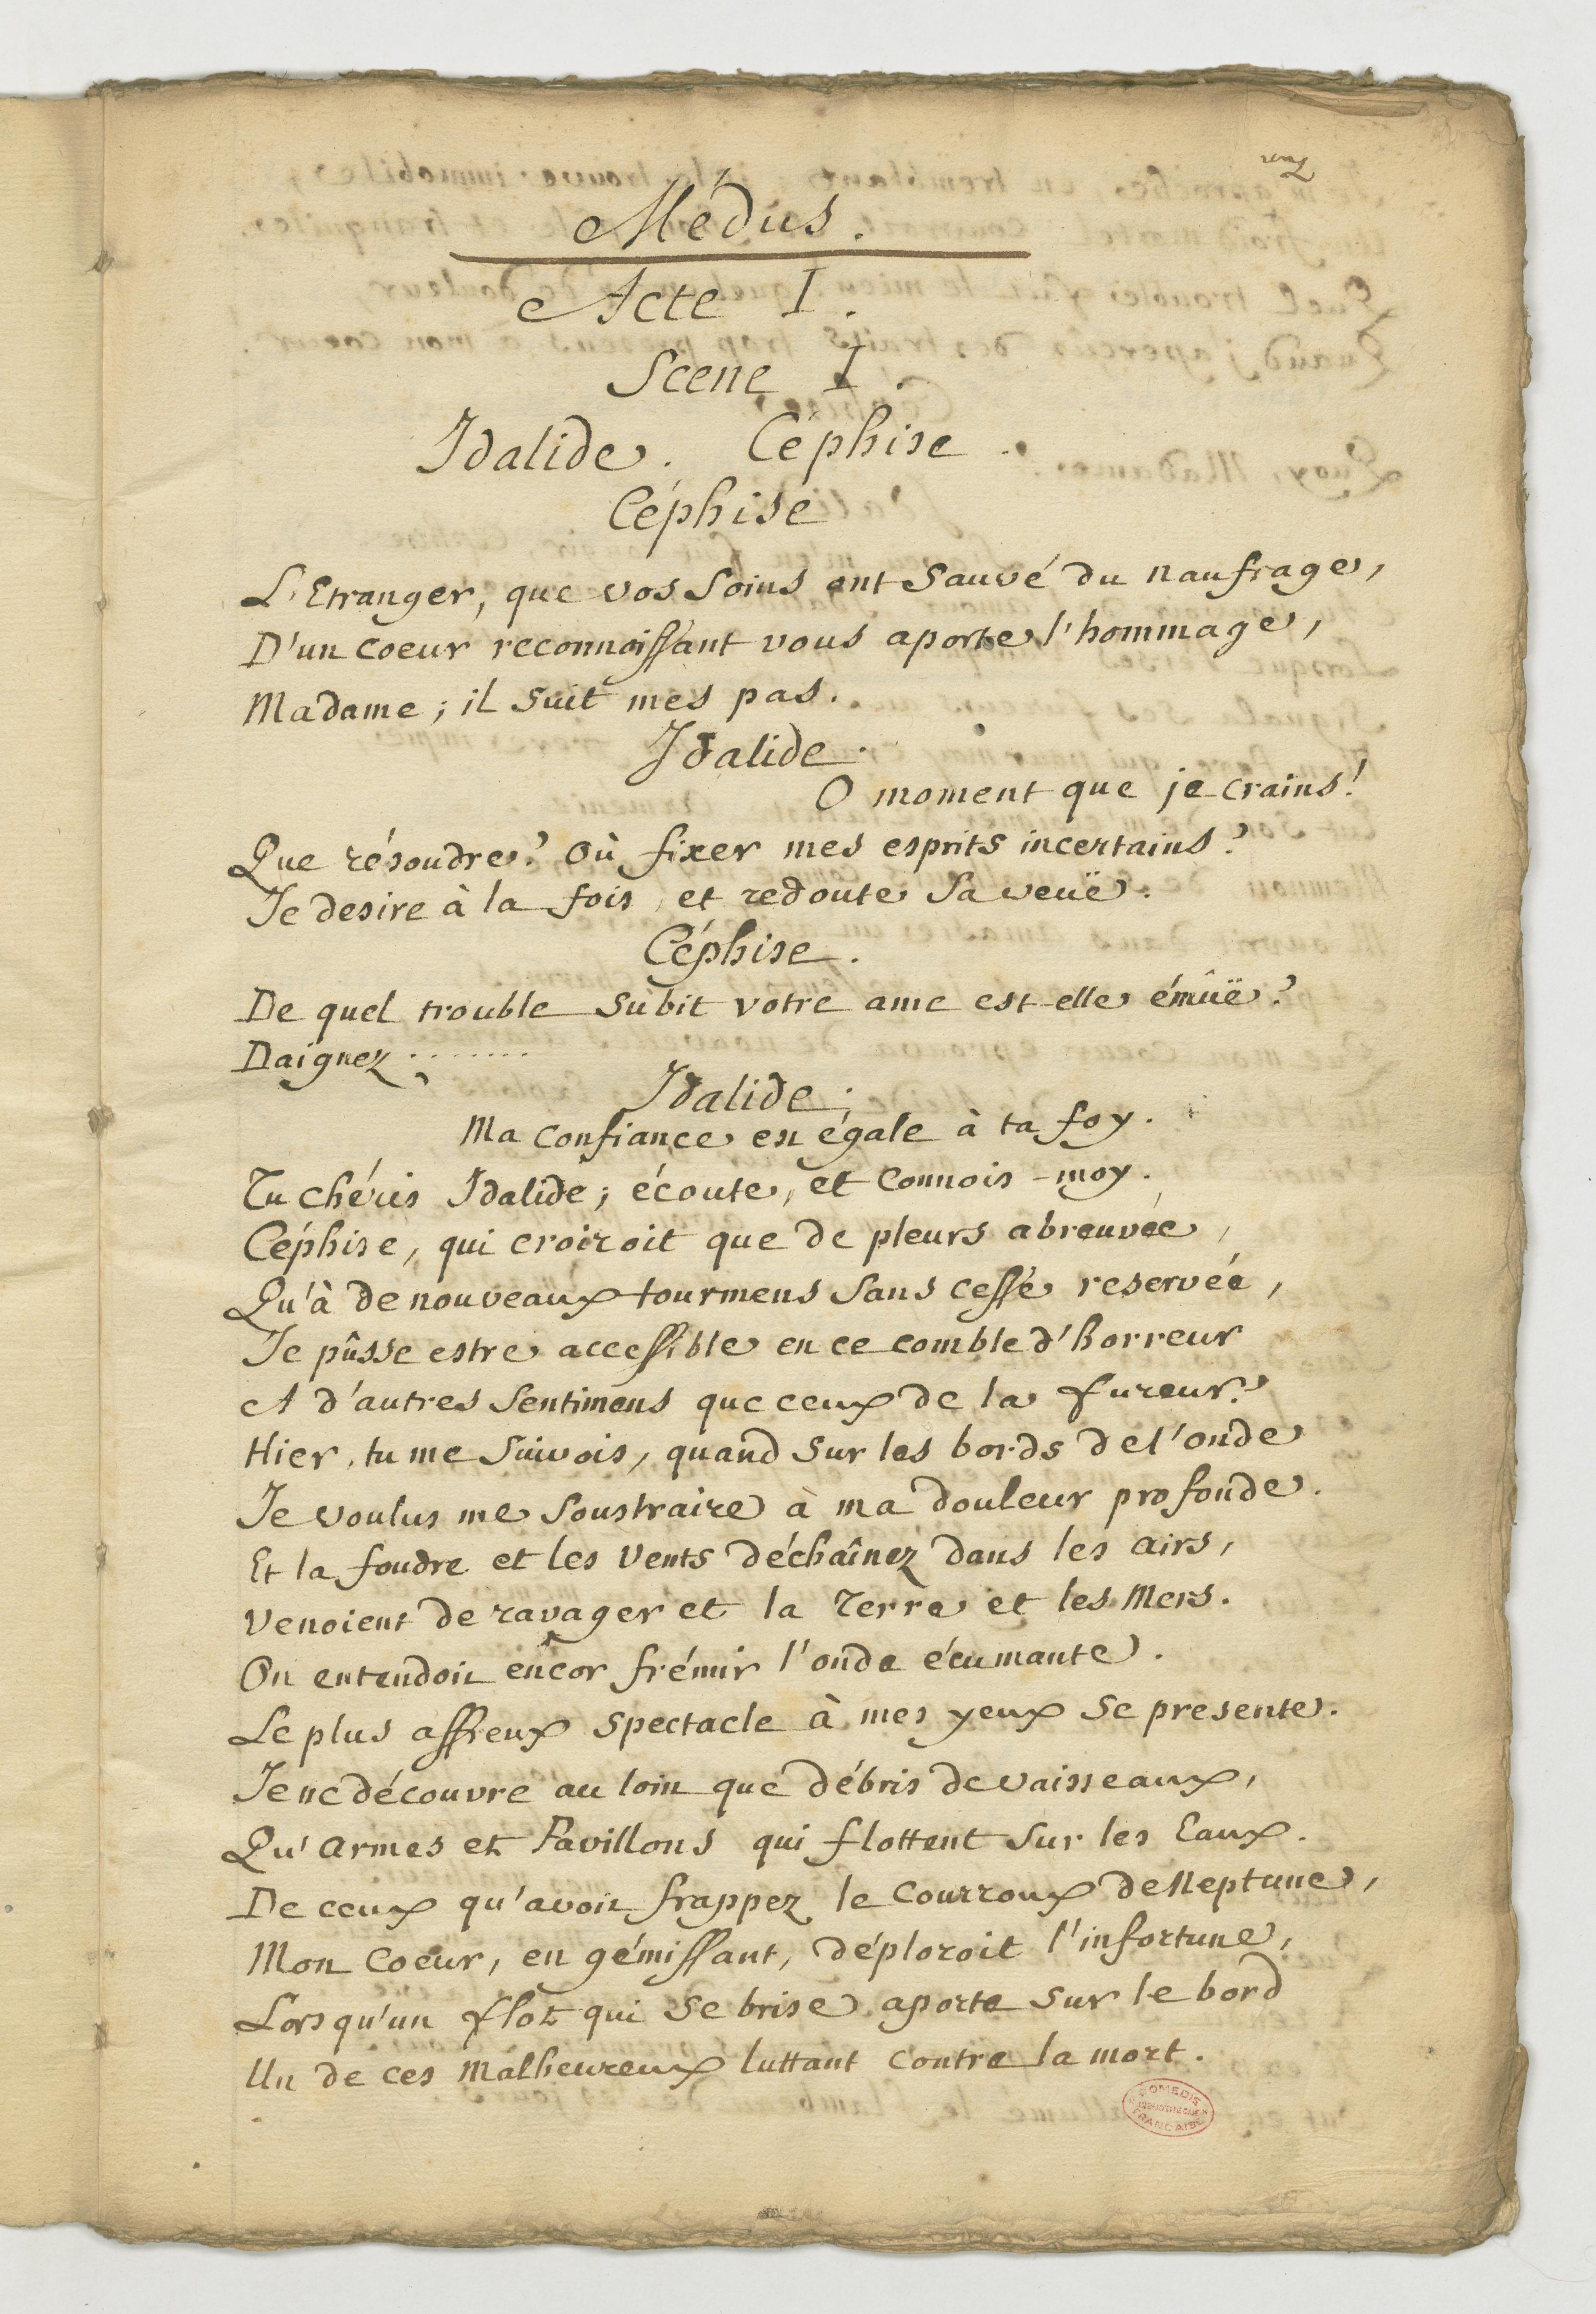 Médus.
Acte I.
Scene I.
Idalide. Céphise.
Céphise
L'Etranger, que vos soins ont sauvé du naufrage,
D'un coeur reconnoissant vous aporte l'hommage,
Madame; il suit mes pas.
Idalide.
O moment que je crains!
Que résoudre? où fixer mes esprits incertains?
Je desire à la fois, et redoute sa veuë.
Céphise.
De quel trouble subit votre ame est-elle émûë?
Daignez .......
Idalide.
Ma confiance est égale à ta foy.
Tu chéris Idalide; écoute, et connois-moy.
Céphise, qui croiroit que de pleurs abreuvée,
Qu'à de nouveaux tourmens sans cesse reservée,
Je pûsse estre accessible en ce comble d'horreur
A d'autres sentimens que ceux de la fureur?
Hier, tu me suivois, quand sur les bords de l'onde
Je voulus me soustraire à ma douleur profonde.
Et la foudre et les vents déchaînez dans les airs,
Venoient de ravager et la Terre et les Mers.
On entendoit encor frémir l'onde écumante.
Le plus affreux spectacle à mes yeux se presente.
Je ne découvre au loin que débris de vaisseaux,
Qu'armes et Pavillons qui flottent sur les Eaux.
De ceux qu'avoit frappez le courroux de Neptune,
Mon coeur, en gémissant, déploroit l'infortune,
Lorsqu'un flot qui se brise aporte sur le bord
Un de ces malheureux luttant contre la mort.
COMEDIE
FRANCAISE